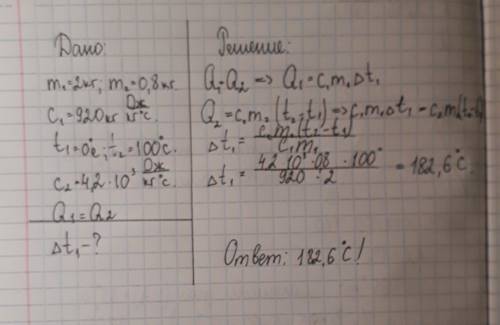 Дано:
m₁=2кг; m₂=0,8кг.
c₁=920кг Дж/кг°c.
t₁=0°c; t₂=100°c.
c₂=4,2·10³ Дж/кг°c
Q₁=Q₂
Δt₁-?
Решение:
Q₁=Q₂ => Q₁=c₁m₁Δt₁
Q₂=c₂m₂(t₂-t₁) => c₁m₁Δt₁=c₂m₂(t₂-t₁)
Δt₁= c₂m₂(t₂-t₁) / c₁m₁
Δt₁= 4,2·10³·0,8·100° / 920·2 =182,6°c.
Ответ: 182,6°c!